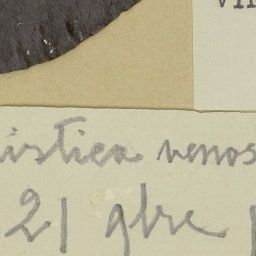 VII
istica venos
21 gbre